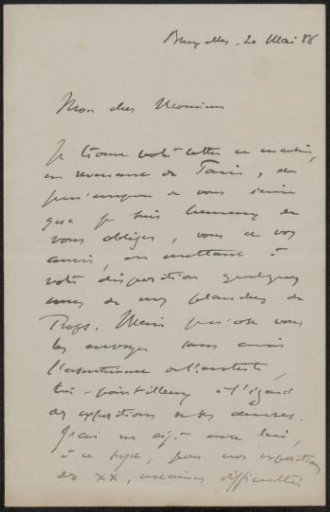 Bruxelles. 20 Mai 86
Mon cher Monsieur
Je trouve votre lettre ce matin,
en revenant de Paris, et
de vous écrire
que je suis heureux de
vous obliger, vous et vos
amis, en mettant à
votre disposition quelques
unes de nos planches de
Rops. Mais puis-je vous
les envoyer sans avoir
l'assentiment de l'artiste,
très-pointilleux à l'égard
des expositions de ses œuvres.
J'ai eu déjà avec lui,
à ce sujet, pour nos expositions
des XX, certaines difficultés